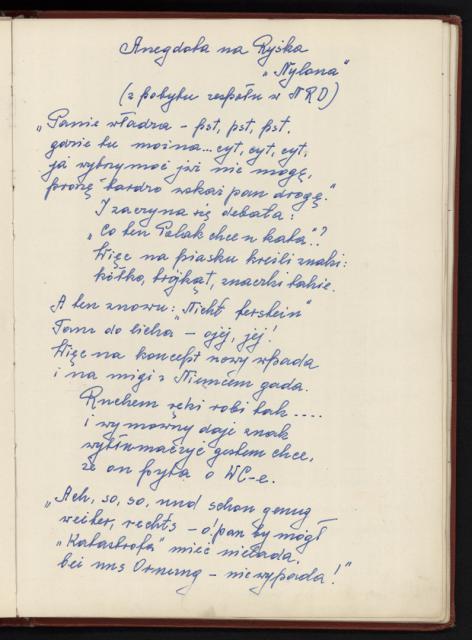 Anegdota na Ryśka
"Nylona"
(z pobytu zespołu w NRD)
"Panie władza – pst, pst, pst,
gdzie tu można... cyt, cyt, cyt,
ja wytrzymać już nie mogę,
proszę bardzo wskaż pan drogę."
I zaczyna się debata:
"Co ten Polak chce u kata"?
Więc na piasku kreśli znaki:
kółko, trójkąt, znaczki takie.
A ten znowu: "Nicht ferstein"
Tam do licha – ojej, jej!
Więc na koncept nowy wpada
i na migi z Niemcem gada.
Ruchem ręki robi tak ....
i wymowny daje znak
wytłumaczyć gestem chce,
że on pyta o WC-e.
"Ach, so, so, und schon genug
weiter, rechts – o! pan by mógł
"Katastrofa" mieć nielada,
bei uns Ornung – nie wypada!"